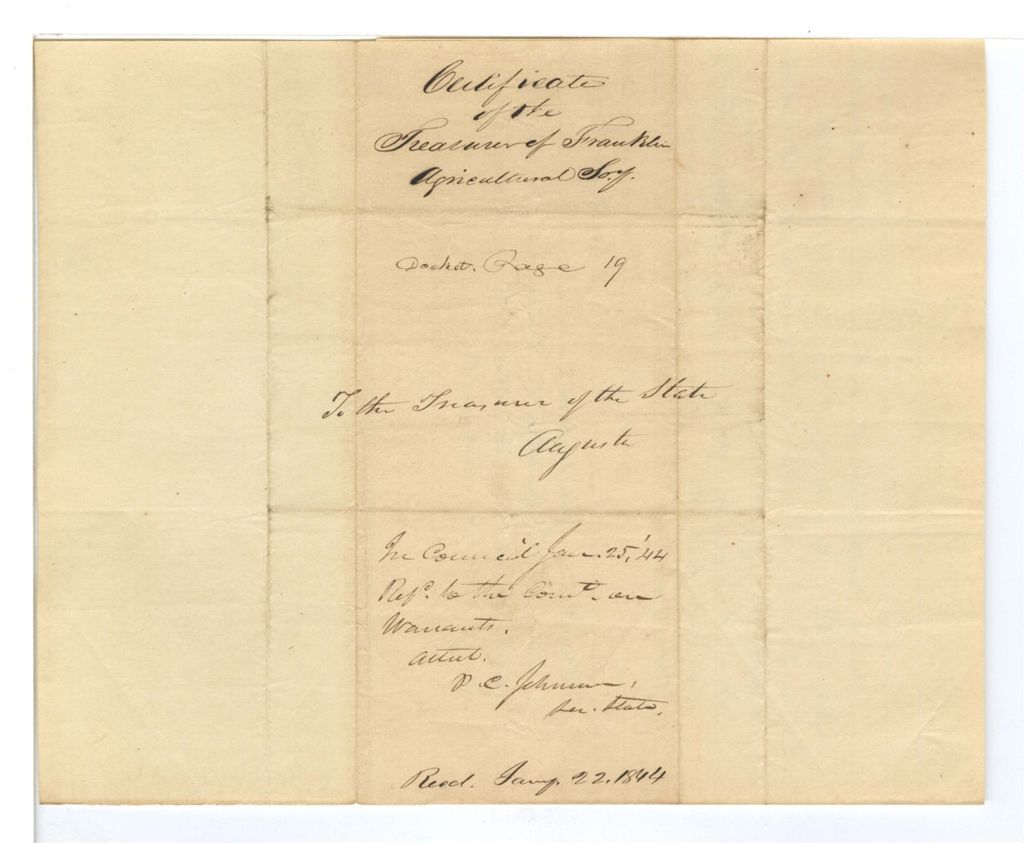 Certificate
of the
Treasurer of Franklin
Agricultural Soy.
Docket. Page 19
To the Treasurer of the State
Augusta
In Council Jan. 25, '44
Refd. to the Comte. on
Warrants.
Attest.
P. C. Johnson,
Sec. State.
Recd. Jany. 22. 1844